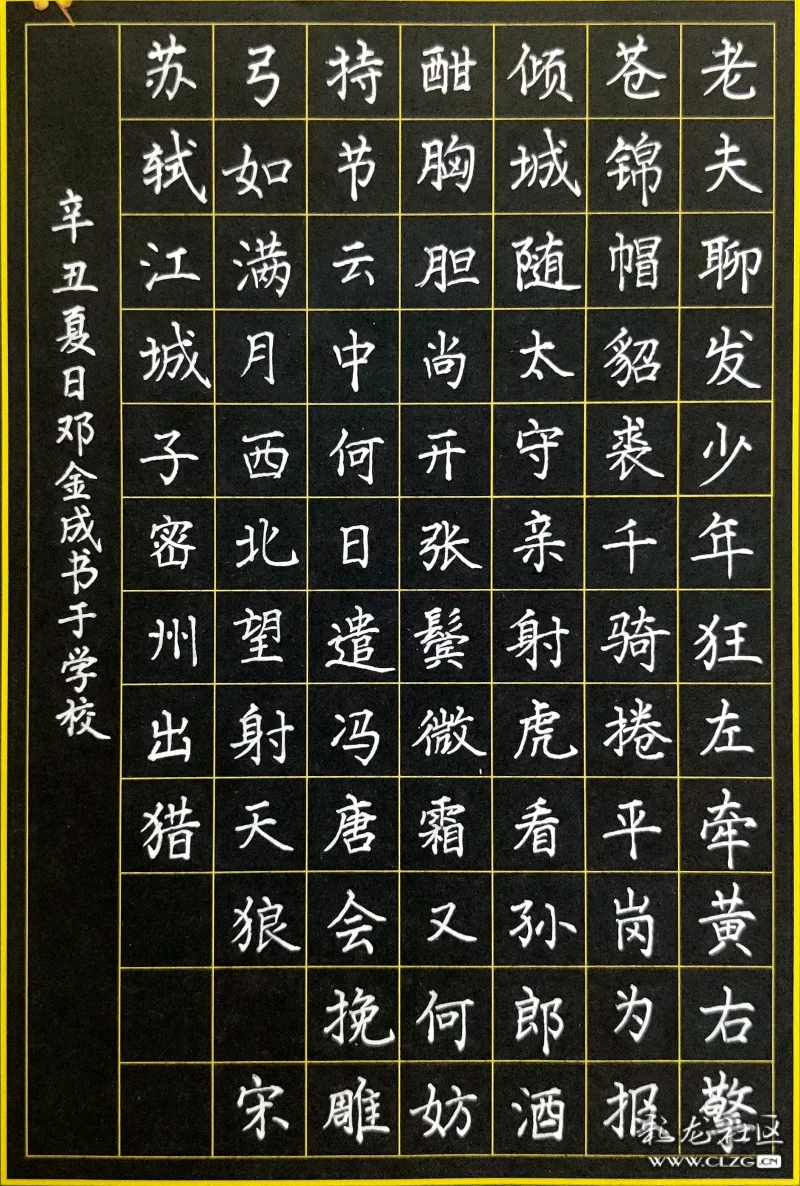 老夫聊发少年狂左牵黄右擎
苍锦帽貂裘千骑捲平岗为报
倾城随太守亲射虎看孙郎酒
酣胸胆尚开张鬓微霜又何妨
持节云中何日遣冯唐会挽雕
弓如满月西北望射天狼 宋
苏轼江城子密州出猎
辛丑夏日邓金成书于学校
彩龙社区
WWW.CLZG.CN